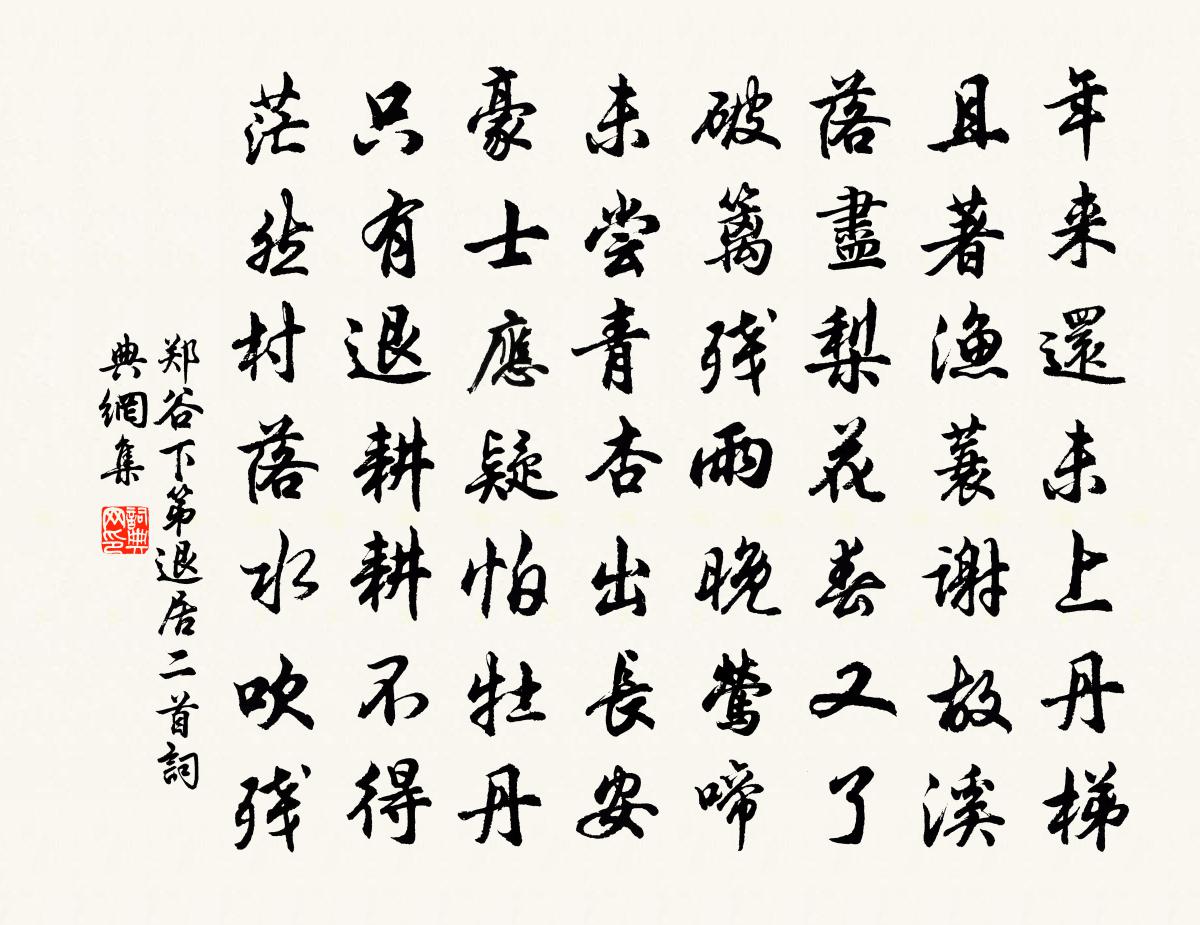 年来還未上丹梯
且著漁蓑謝故溪
落盡梨花春又了
破篱残雨晚鶯啼
未尝青杏出長安
豪士應疑怕牡丹
只有退耕耕不得
茫然村落水吹残
郑谷下第退居二首詞
典網集
詞典
网印